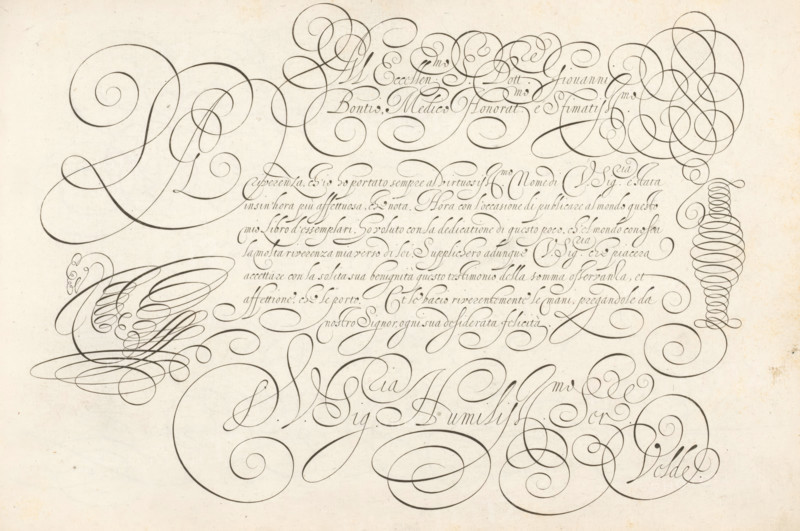 All Eccellen.mo Sr. Dott.re Giovanni
Bontio, Medico Honorat.mo e Stimatiss.mo
La riverenza, ch'io ho portato sempre al virtuosiss.mo Nome di V. Sig.ria è stata
insin'hora più affettuosa, che nota. Hora con l'occasione di publicare al mondo questo
mio libro d'essemplari, ho voluto con la dedicatione di questo poco, ch'el mondo conosca
la molta riverenza mia verso di lei. Supplichero adunque V. Sig.ria che piaccia
accettare con la solita sua benignita questo testimonio della somma osservanza, et
affettione, che le porto. Et le bacio riverentemente le mani, pregandole da
nostro Signor, ogni sua desiderata felicità.
D. V. Sig.ria Humiliss.mo Ser.re
Velde.